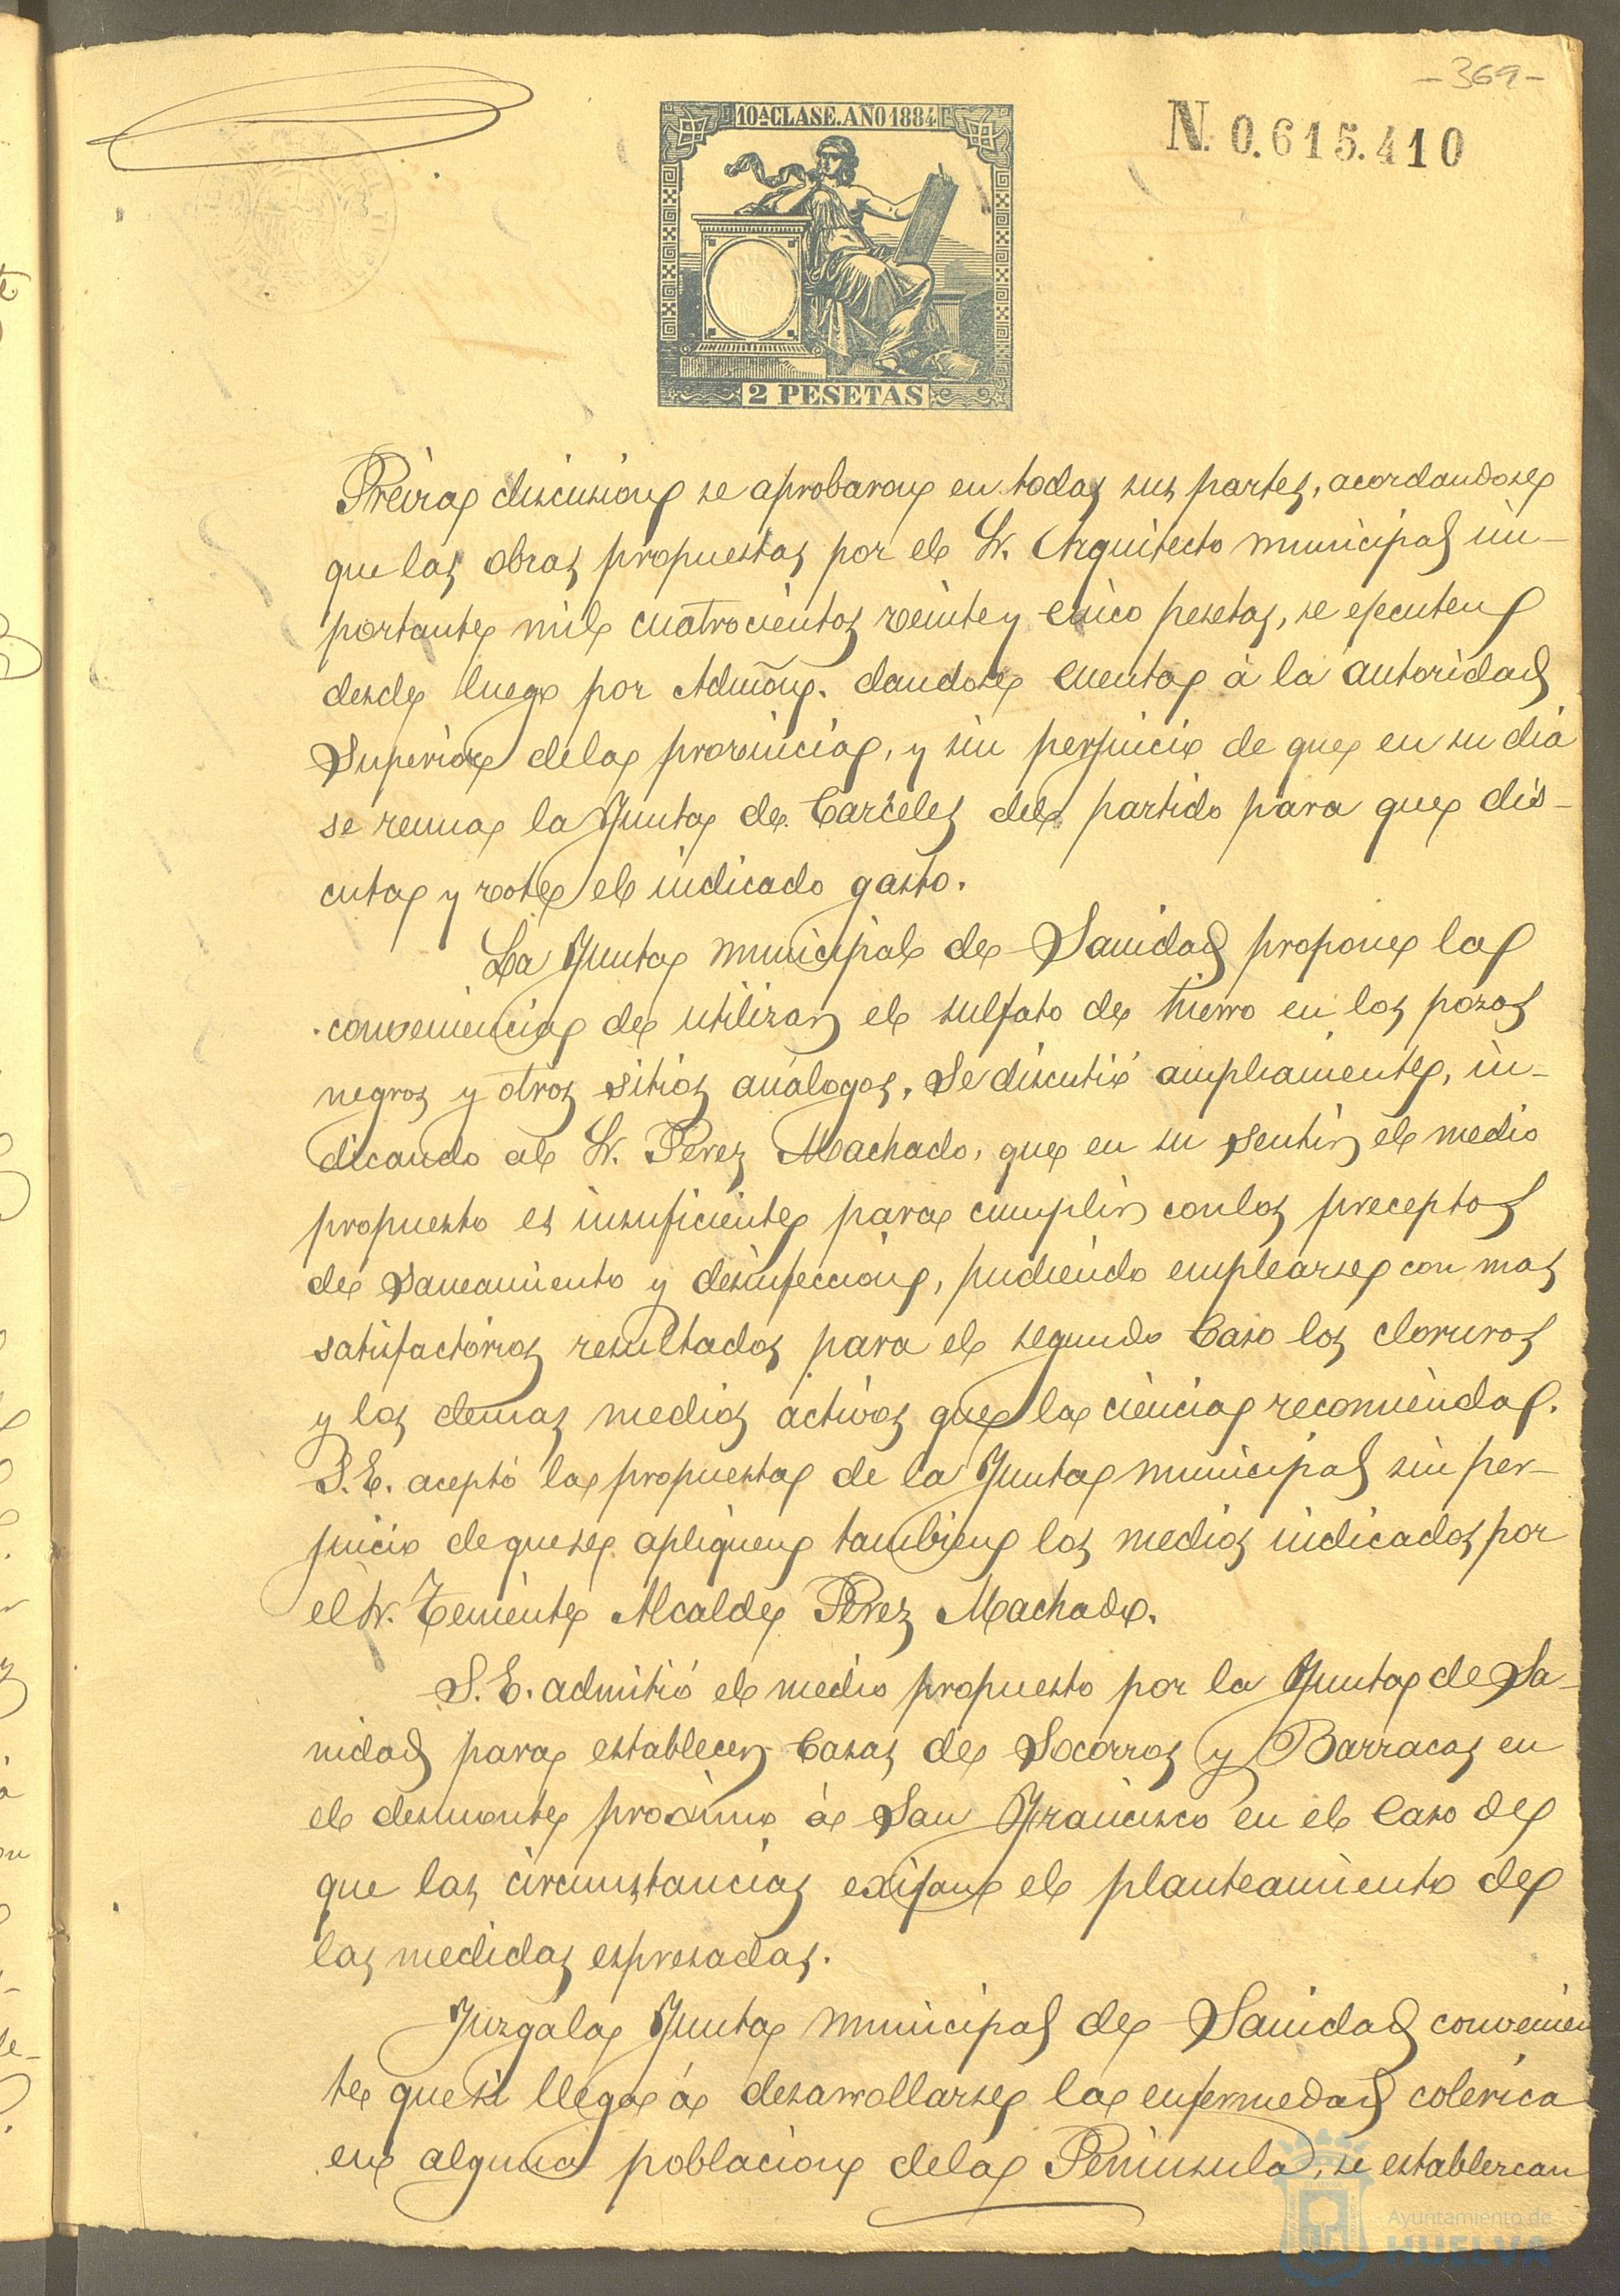 -369-
10ª CLASE. AÑO 1884
N. 0.615.410
2 PESETAS
Prévia discusion se aprobaron en todas sus partes, acordandose
que las obras propuestas por el Sr. Arquitecto municipal im-
portante mil cuatrocientos veinte y cinco pesetas, se ejecuten
desde luego por Admon. dandose cuenta á la autoridad
Superior dela provincia, y sin perjuicio de que en su dia
se reuna la Junta de Carceles del partido para que dis-
cuta y vote el indicado gasto.
La Junta municipal de Sanidad propone la
conveniencia de utilizar el sulfato de hierro en los pozos
negros y otros sitios análogos. Se discutió ampliamente, in-
dicando el Sr. Perez Machado, que en su sentir el medio
propuesto es insuficiente para cumplir conlos preceptos
de saneamiento y desinfeccion, pudiendo emplearse con mas
satisfactorios resultados para el segundo Caso los cloruros
y los demas medios activos que la ciencia recomienda.
S.E. aceptó la propuesta de la Junta municipal sin per-
juicio de quese apliquen tambien los medios indicados por
el Sr. Teniente Alcalde Perez Machado.
S.E. admitió el medio propuesto por la Junta de Sa-
nidad para establecer Casas de Socorros y Barracas en
el desmonte proximo á San Francisco en el Caso de
que las circunstancias exijan el planteamiento de
las medidas espresadas.
Juzgala Junta municipal de Sanidad convenien
te que si llega á desarrollarse la enfermedad colérica
en alguna poblacion dela Peninsula, se establezcan
Ayuntamiento de
HUELVA